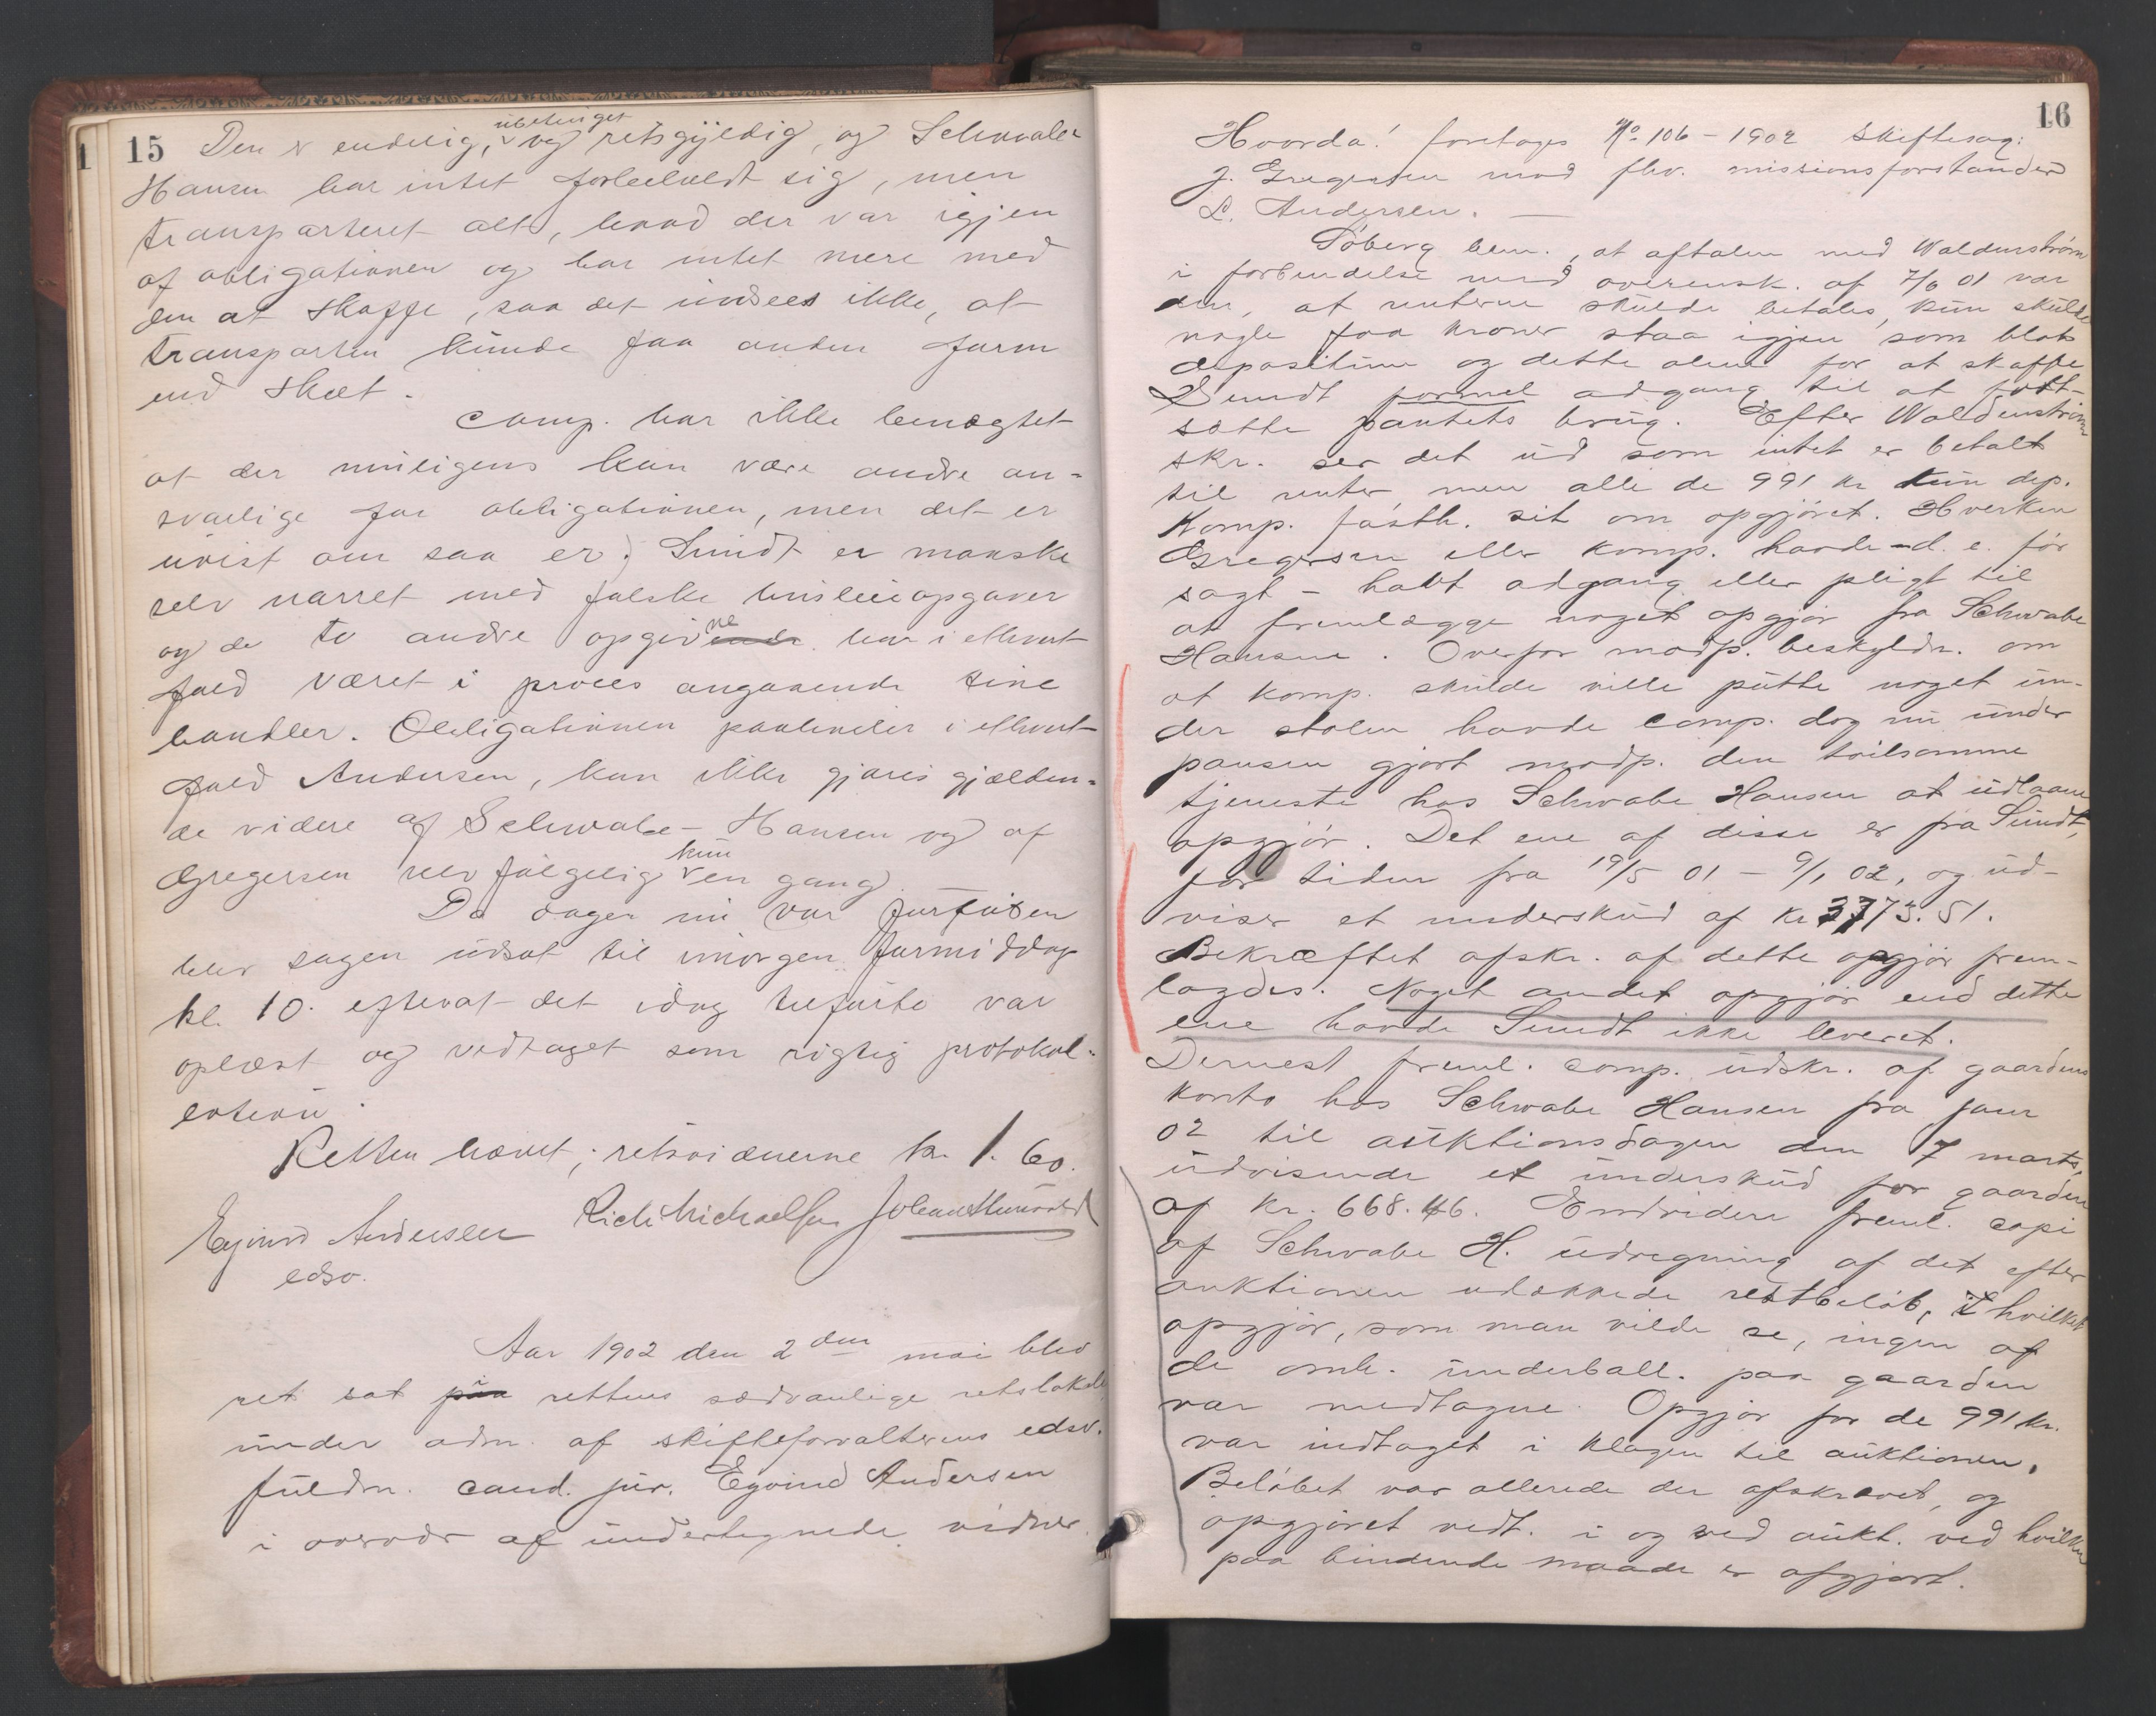 15
Den er endelig, ubetinget og retsgyldig, og Schwabe
Hansen har intet forbeholdt sig, men
transporteret alt, hvad der var igjen
af obligationen og har intet mere med
den at skaffe, saa det indsees ikke, at
transporten kunde faa anden form
end skeet.
Comp. har ikke benægtet
at der muligens kan være andre an-
svarlige for obligationen, men det er
uvist om saa er; Sundt er maaske
selv narret med falske husleieopgaver
og de to andre opgivne har i ethvert
fald været i proces angaaende sine
handler. Obligationen paahviler i ethvert
fald Andersen, kan ikke gjøres gjælden-
de videre af Schwabe-Hansen og af
Gregersen selvfølgelig kun en gang.
Da dagen nu var forløben
blev sagen udsat til imorgen formiddag
kl. 10. efterat det idag tilførte var
oplæst og vedtaget som rigtig protokol-
leret
Retten hævet; retsvidnerne kr. 1.60.
Eyvind Andersen
edsv.
Rich Michaelsen
Aar 1902 den 2den mai blev
ret sat i rettens sædvanlige retslokale
under adm. af skifteforvalterens edsv.
fuldm. cand. jur. Eyvind Andersen
i overvær af undertegnede vidner.
16
Hvorda! foretoges No 106-1902 Skiftesag:
J. Gregersen mod fhv. missionsforstander
L. Andersen.
Søberg bem., at aftalen med Waldenstrøm
i forbindelse med overensk. af 01 var
den, at renterne skulde betales, kun skulde
nogle faa kroner staa igjen som blot
depositum og dette alene for at skaffe
Sundt formel adgang til at fort-
sætte pantets brug. Efter Waldenstrøms
skr. ser det ud som intet er betalt
til renter men alle de 991 kr kun dep.
Komp. fasth. sit om opgjøret. Hverken
Gregersen eller komp. havde - d. e. før
sagt - havt adgang eller pligt til
at fremlægge noget opgjør fra Schwabe
Hansen. Overfor modp. beskyldn. om
at komp. skulde ville putte noget un-
der stolen havde comp. dog nu under
pausen gjort modp. den tvilsomme
tjeneste hos Schwabe Hansen at udlaane
opgjør. Det ene af disse er fra Sundt,
for tiden fra 19/5 01 - 9/1 02, og ud-
viser et underskud af kr 3373.51.
Bekræftet afskr. af dette opgjør frem-
lagdes. Noget andet opgjør end dette
ene havde Sundt ikke leveret.
Dernest freml. comp. udskr. af gaardens
konto hos Schwabe Hansen fra janr
02 til auktionsdagen den 7 marts,
udvisende et underskud for gaarden
af kr. 668.46. Endvidere freml. copi
af Schwabe H. udregning af det efter
auktionen udækkede restbeløb, i hvilket
opgjør, som man vilde se, ingen af
de omh. underball. paa gaarden
var medtagne. Opgjør for de 991 kr.
var indtaget i klagen til auktionen.
Beløbet var allerede der afskrevet, og
opgjøret vedt. i og ved aukt. ved hvilken
paa bindende maade er afgjort.